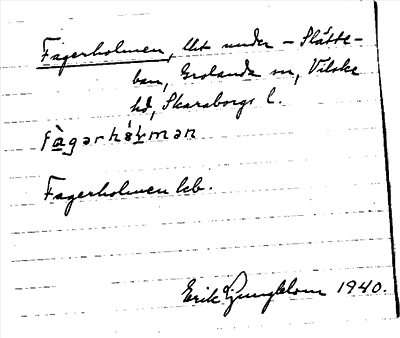 Fagerholmen, lht under – Slätte-
ban, Grolanda sn, Vilske
hd, Skaraborgs l.
Fagerholmen kb.
Erik Ljungblom 1940.